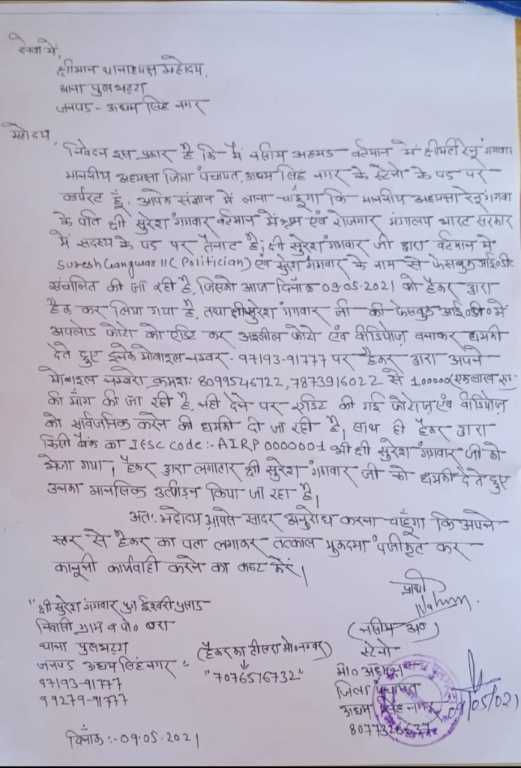 सेवा में,
श्रीमान थानाध्यक्ष महोदय,
थाना पुलभट्टा
जनपद - ऊधम सिंह नगर
महोदय,
निवेदन इस प्रकार है कि मैं नसीम अहमद वर्तमान में श्रीमती रेनू गंगवार
माननीय अध्यक्षा जिला पंचायत, ऊधम सिंह नगर के स्टेनो के पद पर
कार्यरत हूँ, आपके संज्ञान में लाना चाहूँगा कि माननीय अध्यक्षा रेनू गंगवार
के पति श्री सुरेश गंगवार वर्तमान में श्रम एवं रोजगार मंत्रालय भारत सरकार
में सदस्य के पद पर तैनात है, श्री सुरेश गंगवार जी द्वारा वर्तमान में
Suresh Gangwar II (Politician) एवं सुरेश गंगवार के नाम से फेसबुक आई०डी०
संचालित की जा रही है, जिसको आज दिनांक 09.05.2021 को हैकर द्वारा
हैक कर लिया गया है, तथा श्री सुरेश गंगवार जी की फेसबुक आई०डी० में
अपलोड फोटो को एडिट कर अश्लील फोटो एवं वीडियोज बनाकर धमकी
देते हुए इनके मोबाइल नम्बर - 97193-91777 पर हैकर द्वारा अपने
मोबाइल नम्बरों क्रमशः 8099546722, 7873916022 से 100000 (एक लाख रू०
की मांग की जा रही है, नही देने पर एडिट की गई फोटोज एवं वीडियोज
को सार्वजनिक करने की धमकी दी जा रही है, साथ ही हैकर द्वारा
किसी बैंक का IFSC Code :- AIRP 0000001 भी श्री सुरेश गंगवार जी को
भेजा गया, हैकर द्वारा लगातार श्री सुरेश गंगवार जी को धमकी देते हुए
उनका मानसिक उत्पीड़न किया जा रहा है,
अतः महोदय आपसे सादर अनुरोध करना चाहूँगा कि अपने
स्तर से हैकर का पता लगाकर तत्काल मुकदमा पंजीकृत कर
कानूनी कार्यवाही करने का कष्ट करें।
प्रार्थी
(नसीम अ०)
स्टेनो
मा० अध्यक्ष
जिला पंचायत
ऊधम सिंह नगर
09/05/021
"श्री सुरेश गंगवार पुत्र ईश्वरी प्रसाद
निवासी ग्राम व पो० बरा
थाना पुलभट्टा
जनपद ऊधम सिंह नगर"
97193-91777
99279-91777
(हैकर का तीसरा मो० नम्बर)
"7076516732"
दिनाँक :- 09.05.2021